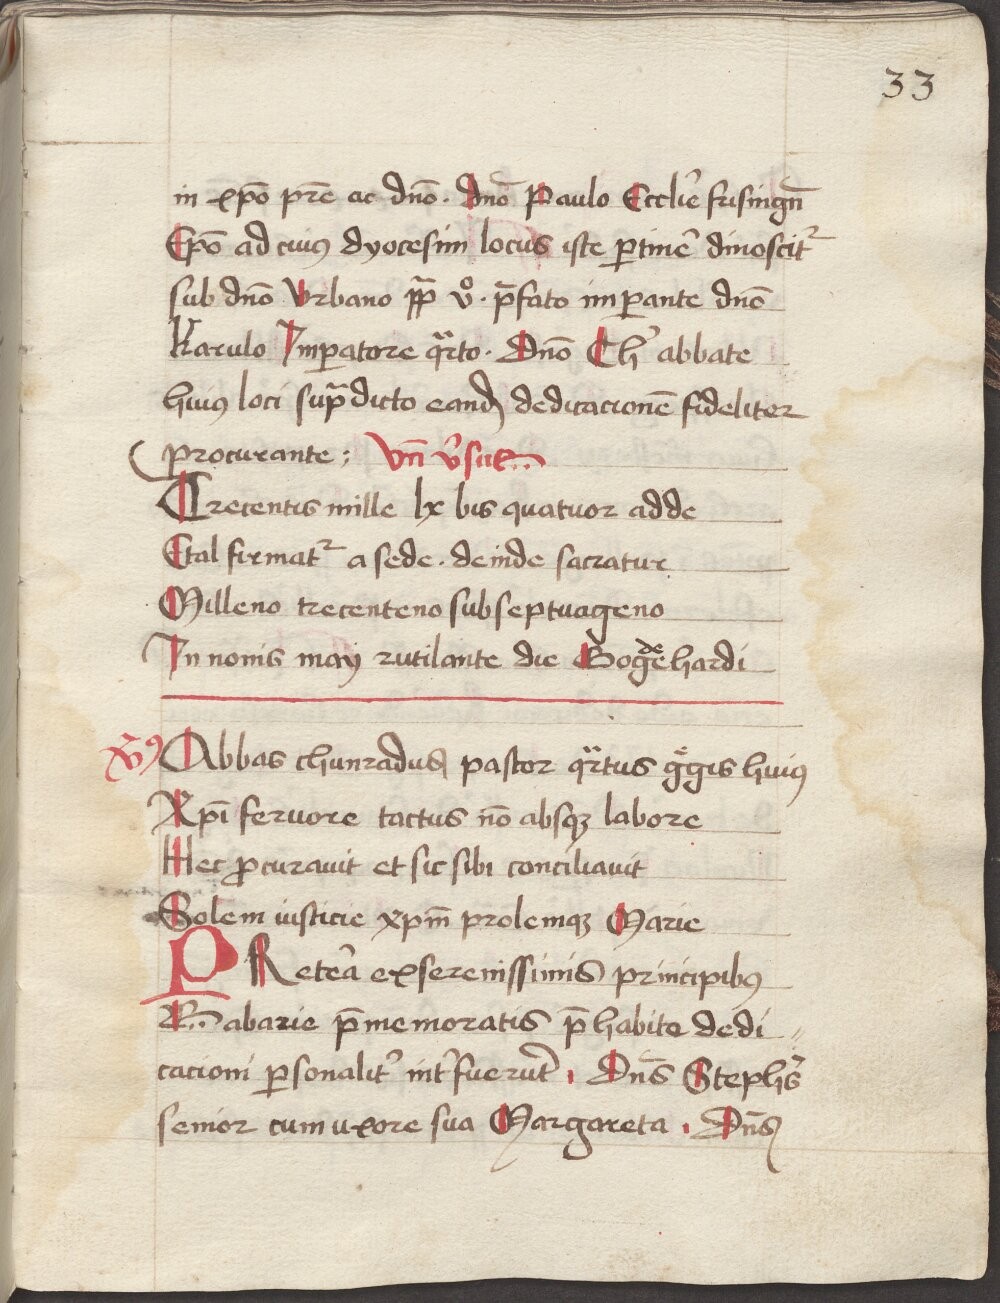 33
in xp̄o pr̄e ac dn̄o. Dn̄o Paulo Eccl̄ie frisingn̄
Ep̄o ad cuiꝰ dyocesim locus iste ꝑtinēr dinoscitᷣ
sub dn̄o Urbano pp̄ vͦ. p̄fato imꝑante dn̄o
Karulo Imꝑatore qᷓrto. Dn̄o Chͬ abbate
huiꝰ loci sup̄dicto eandꝫ dedicacionē fideliter
procurante; Vn̄ v̓sus
Trecentis mille lx bis quatuor adde
Et al firmatᷣ a sede. deinde sacratur
Milleno trecenteno sub septuageno
In nonis maij rutilante die Godehardi
Abbas chunradus pastor qᷓrtus gͤgis huiꝰ
Xp̄i feruore tactus nō absqꝫ labore
Hec ꝓcurauit et sic sibi conciliauit
Solem iusticie xp̄m prolemqꝫ Marie
PReter̄a ex serenissimis principibꝰ
Babarie p̄memoratis p̄habite dedi
cacioni ꝑsonalit̓ int̓fuerūt. Dn̄s Steph̄s
senior cum uxore sua Margareta. Dn̄s